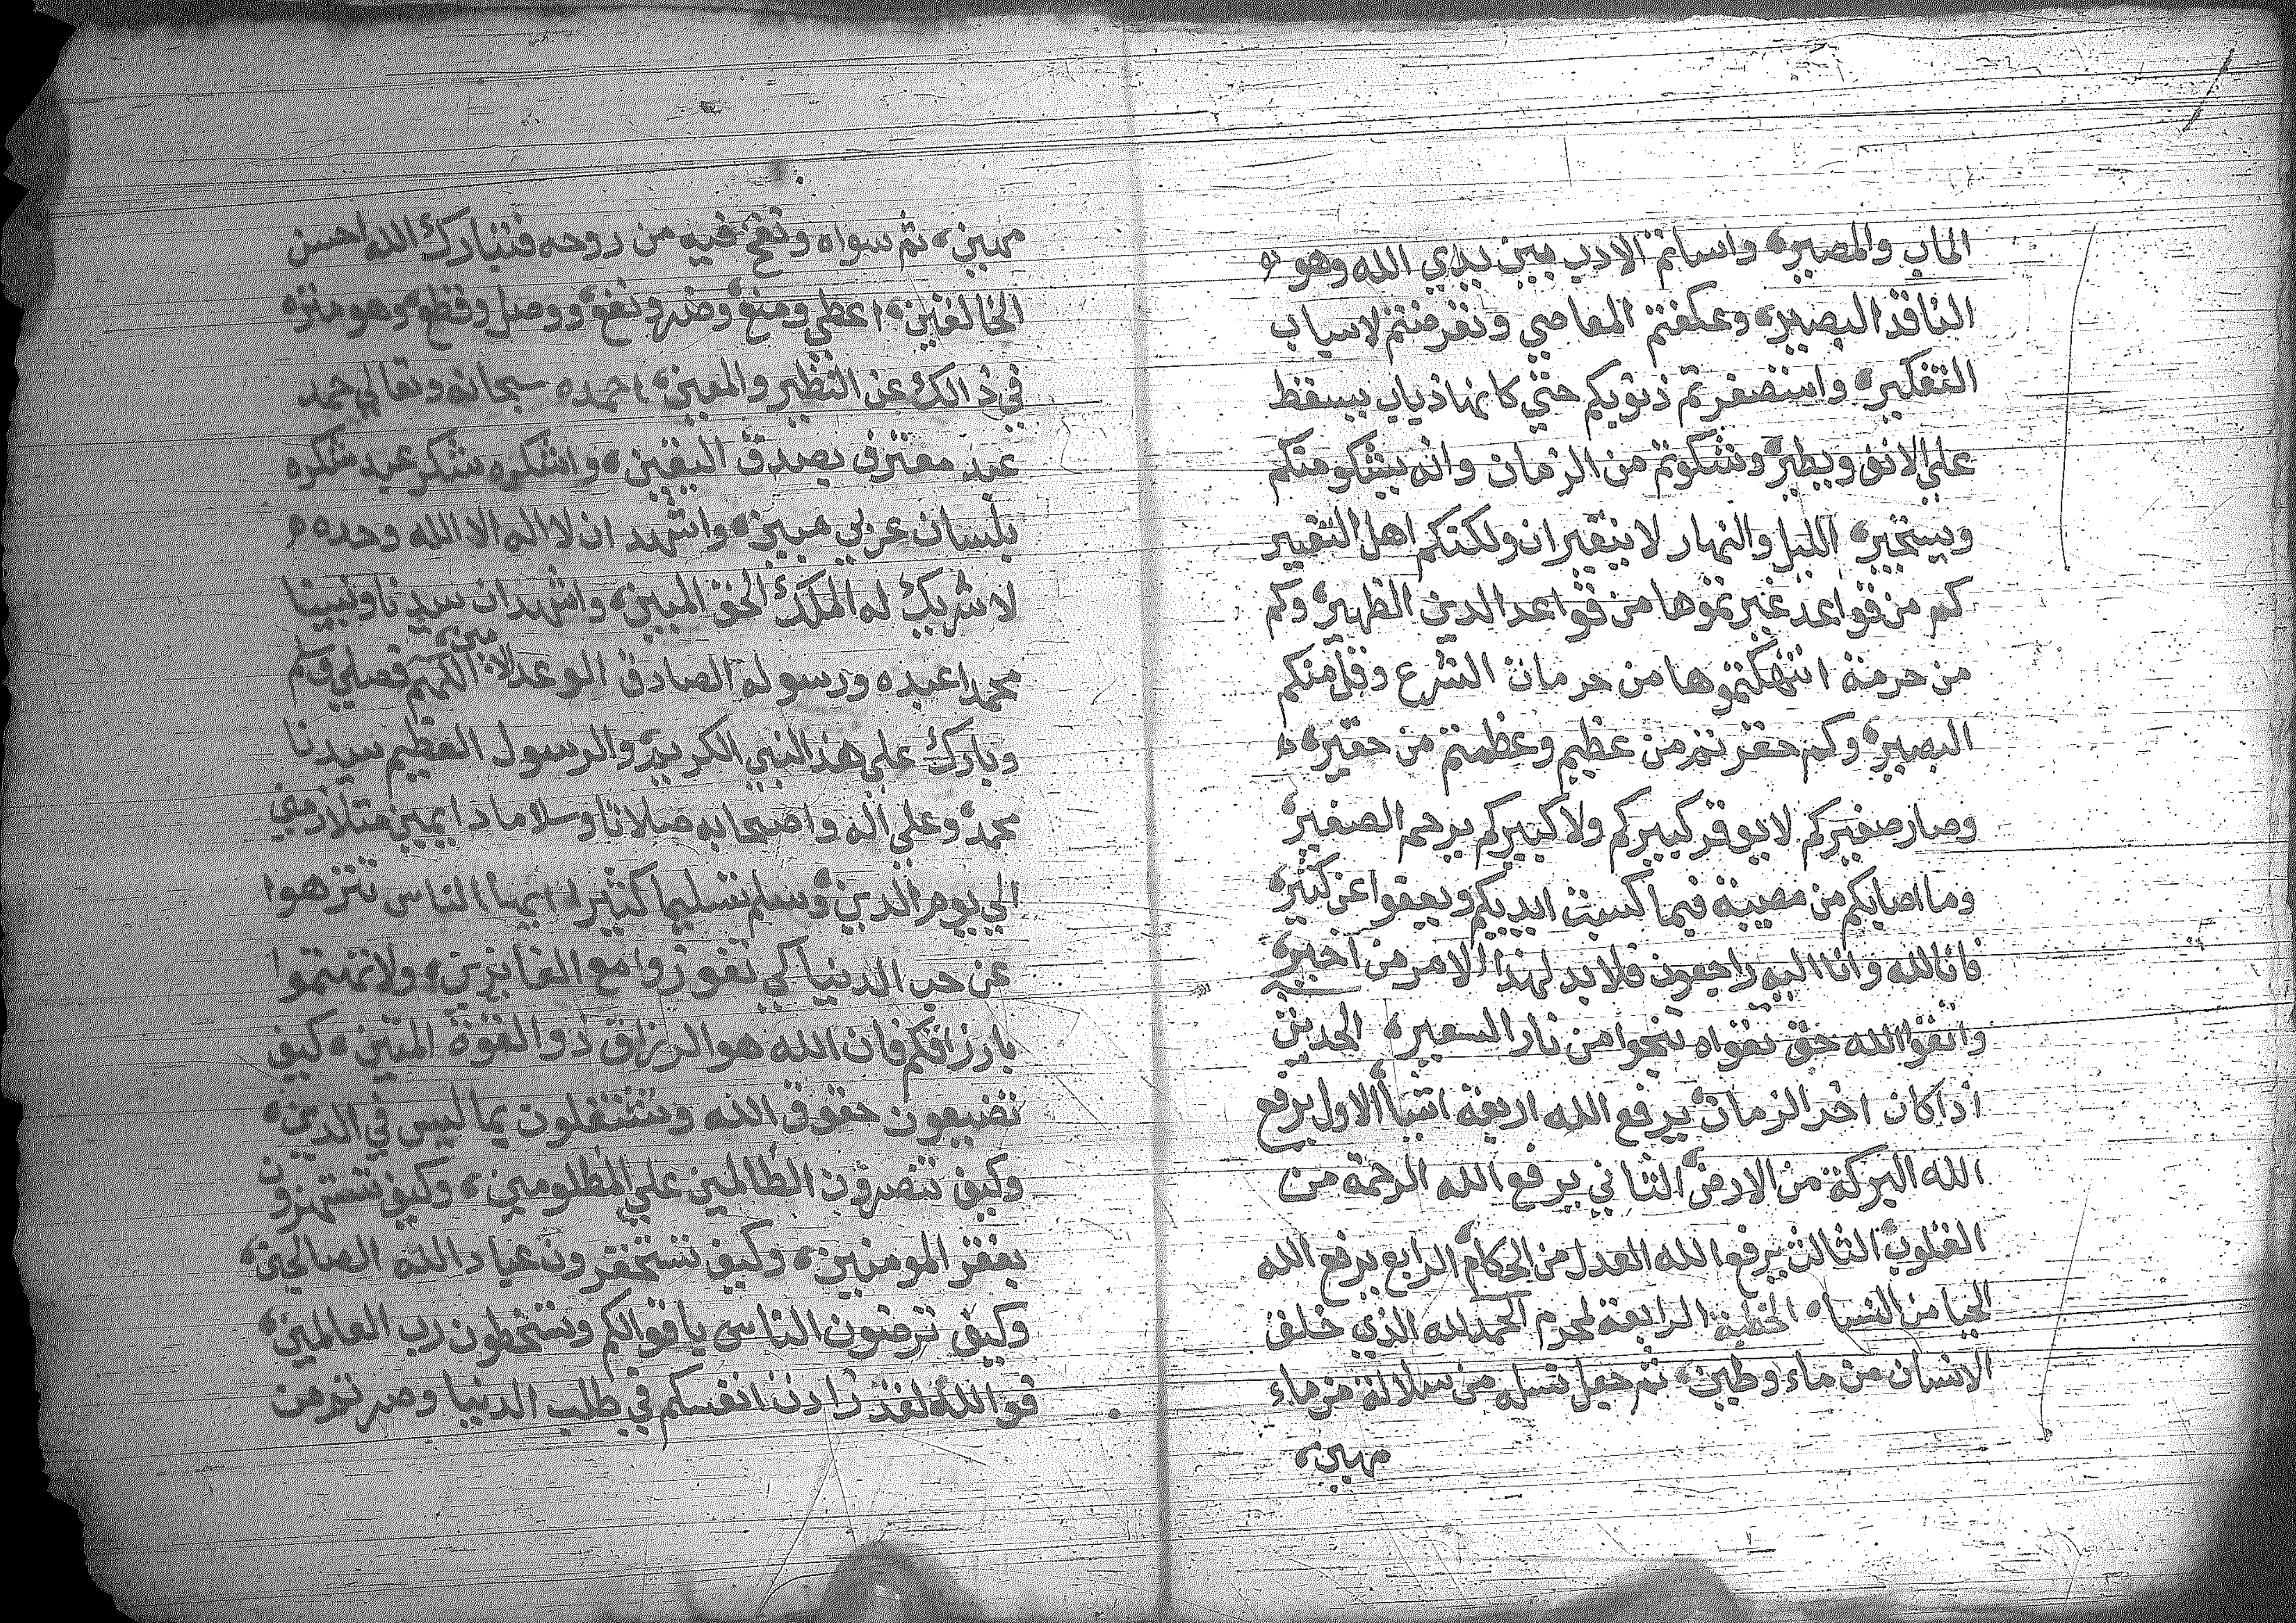 الماب والمصير، واساتم الادب بين يدي الله وهو
الناقد البصير، وعكفتم المعاصي وتعرضتم لاسباب
التفكير، واستصغرتم ذنوبكم حتي كانها ذباب يسقط
علي الانف ويطير، وتشكوتم من الزمان وانه يشكو منكم
ويستجير، الليل والنهار لا يتغيران ولكنكم اهل التغيير
كم من قواعد غيرتموها من قواعد الدين الظهير، وكم
من حرمة انتهكتموها من حرمات الشرع وقل منكم
البصير، وكم حقرتم من عظيم وعظمتم من حقير،
وصار صغيركم لا يوقر كبيركم ولا كبيركم يرحم الصغير،
وما اصابكم من مصيبة فبما كسبت ايديكم ويعفوا عن كثير،
فانا لله وانا اليه راجعون فلا بد لهذا الامر من اخير،
واتقوا الله حق تقواه تنجوا من نار السعير، الحديث
اذا كان اخر الزمان يرفع الله اربعة اشيا الاول يرفع
الله البركة من الارض الثاني يرفع الله الرحمة من
القلوب الثالث يرفع الله العدل من الحكام الرابع يرفع الله
الحيا من النسا، الخطبة الرابعة لمحرم الحمد لله الذي خلق
الانسان من ماء وطين، ثم جعل نسله من سلالة من ماء
مهين،
مهين، ثم سواه ونفخ فيه من روحه فتبارك الله احسن
الخالقين، اعطي ومنع وضر ونفع ووصل وقطع وهو منزه
في ذالك عن النظير والمعين، احمده سبحانه وتعالي حمد
عبد معترف بصدق اليقين، واشكره شكر عبد شكره
بلسان عربي مبين، واشهد ان لا اله الا الله وحده
لا شريك له الملك الحق المبين، واشهد ان سيدنا ونبينا
محمدا عبده ورسوله الصادق الوعد الامين، اللهم فصلي وسلم
وبارك علي هذا النبي الكريم والرسول العظيم سيدنا
محمد وعلي اله واصحابه صلاتا وسلاما دايمين متلازمين
الي يوم الدين، وسلم تسليما كثيرا، ايها الناس تنزهوا
عن حب الدنيا كي تفوزوا مع الفايزين، ولا تهتموا
بارزاقكم فان الله هو الرزاق ذو القوة المتين، كيف
تضيعون حقوق الله وتشتغلون بما ليس في الدين،
وكيف تنصرون الظالمين علي المظلومين، وكيف تستهزون
بفقر المومنين، وكيف تستحقرون عباد الله الصالحين،
وكيف ترضون الناس باقوالكم وتسخطون رب العالمين،
فوالله لقد زادت انفسكم في طلب الدنيا وصرتم من